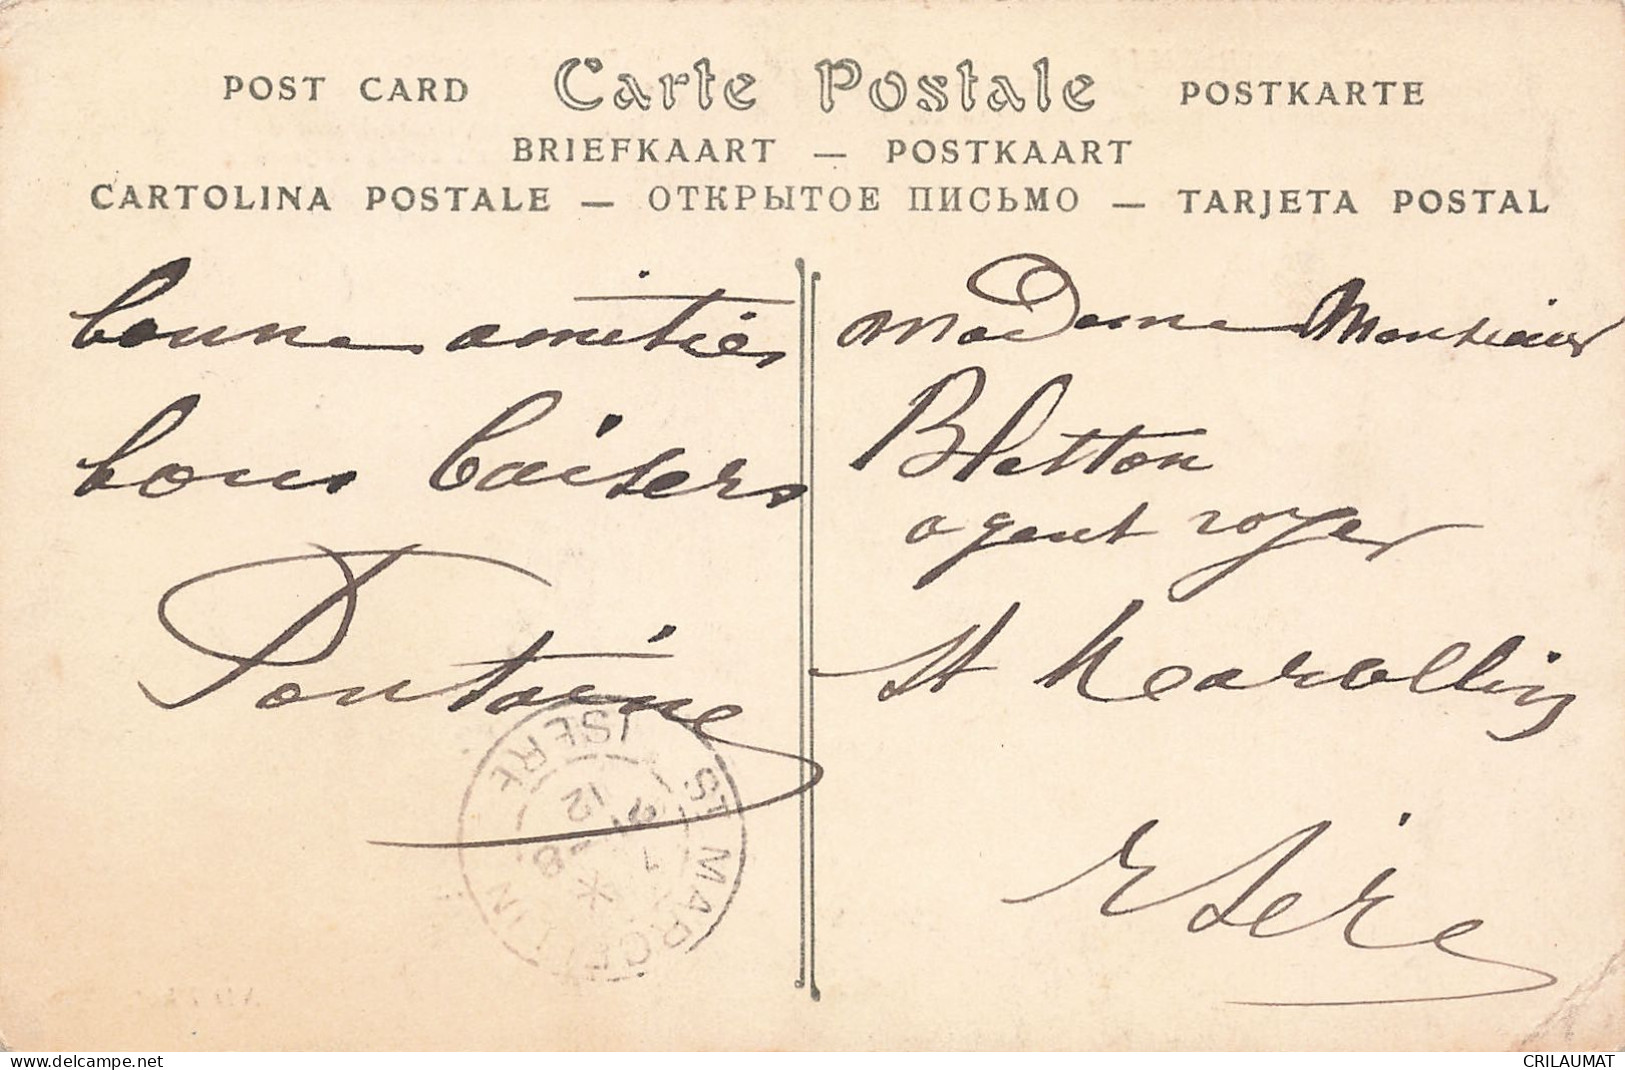 POST CARD Carte Postale POSTKARTE
BRIEFKAART — POSTKAART
CARTOLINA POSTALE — ОТКРЫТОЕ ПИСЬМО — TARJETA POSTAL
bonne amitiés
bons baisers
Fontaine
madame Monsieur
Bletton
agent voyer
St Marcellin
Isère
ST MARCELLIN
ISÈRE
12 - 8
delcampe.net
CRILAUMAT